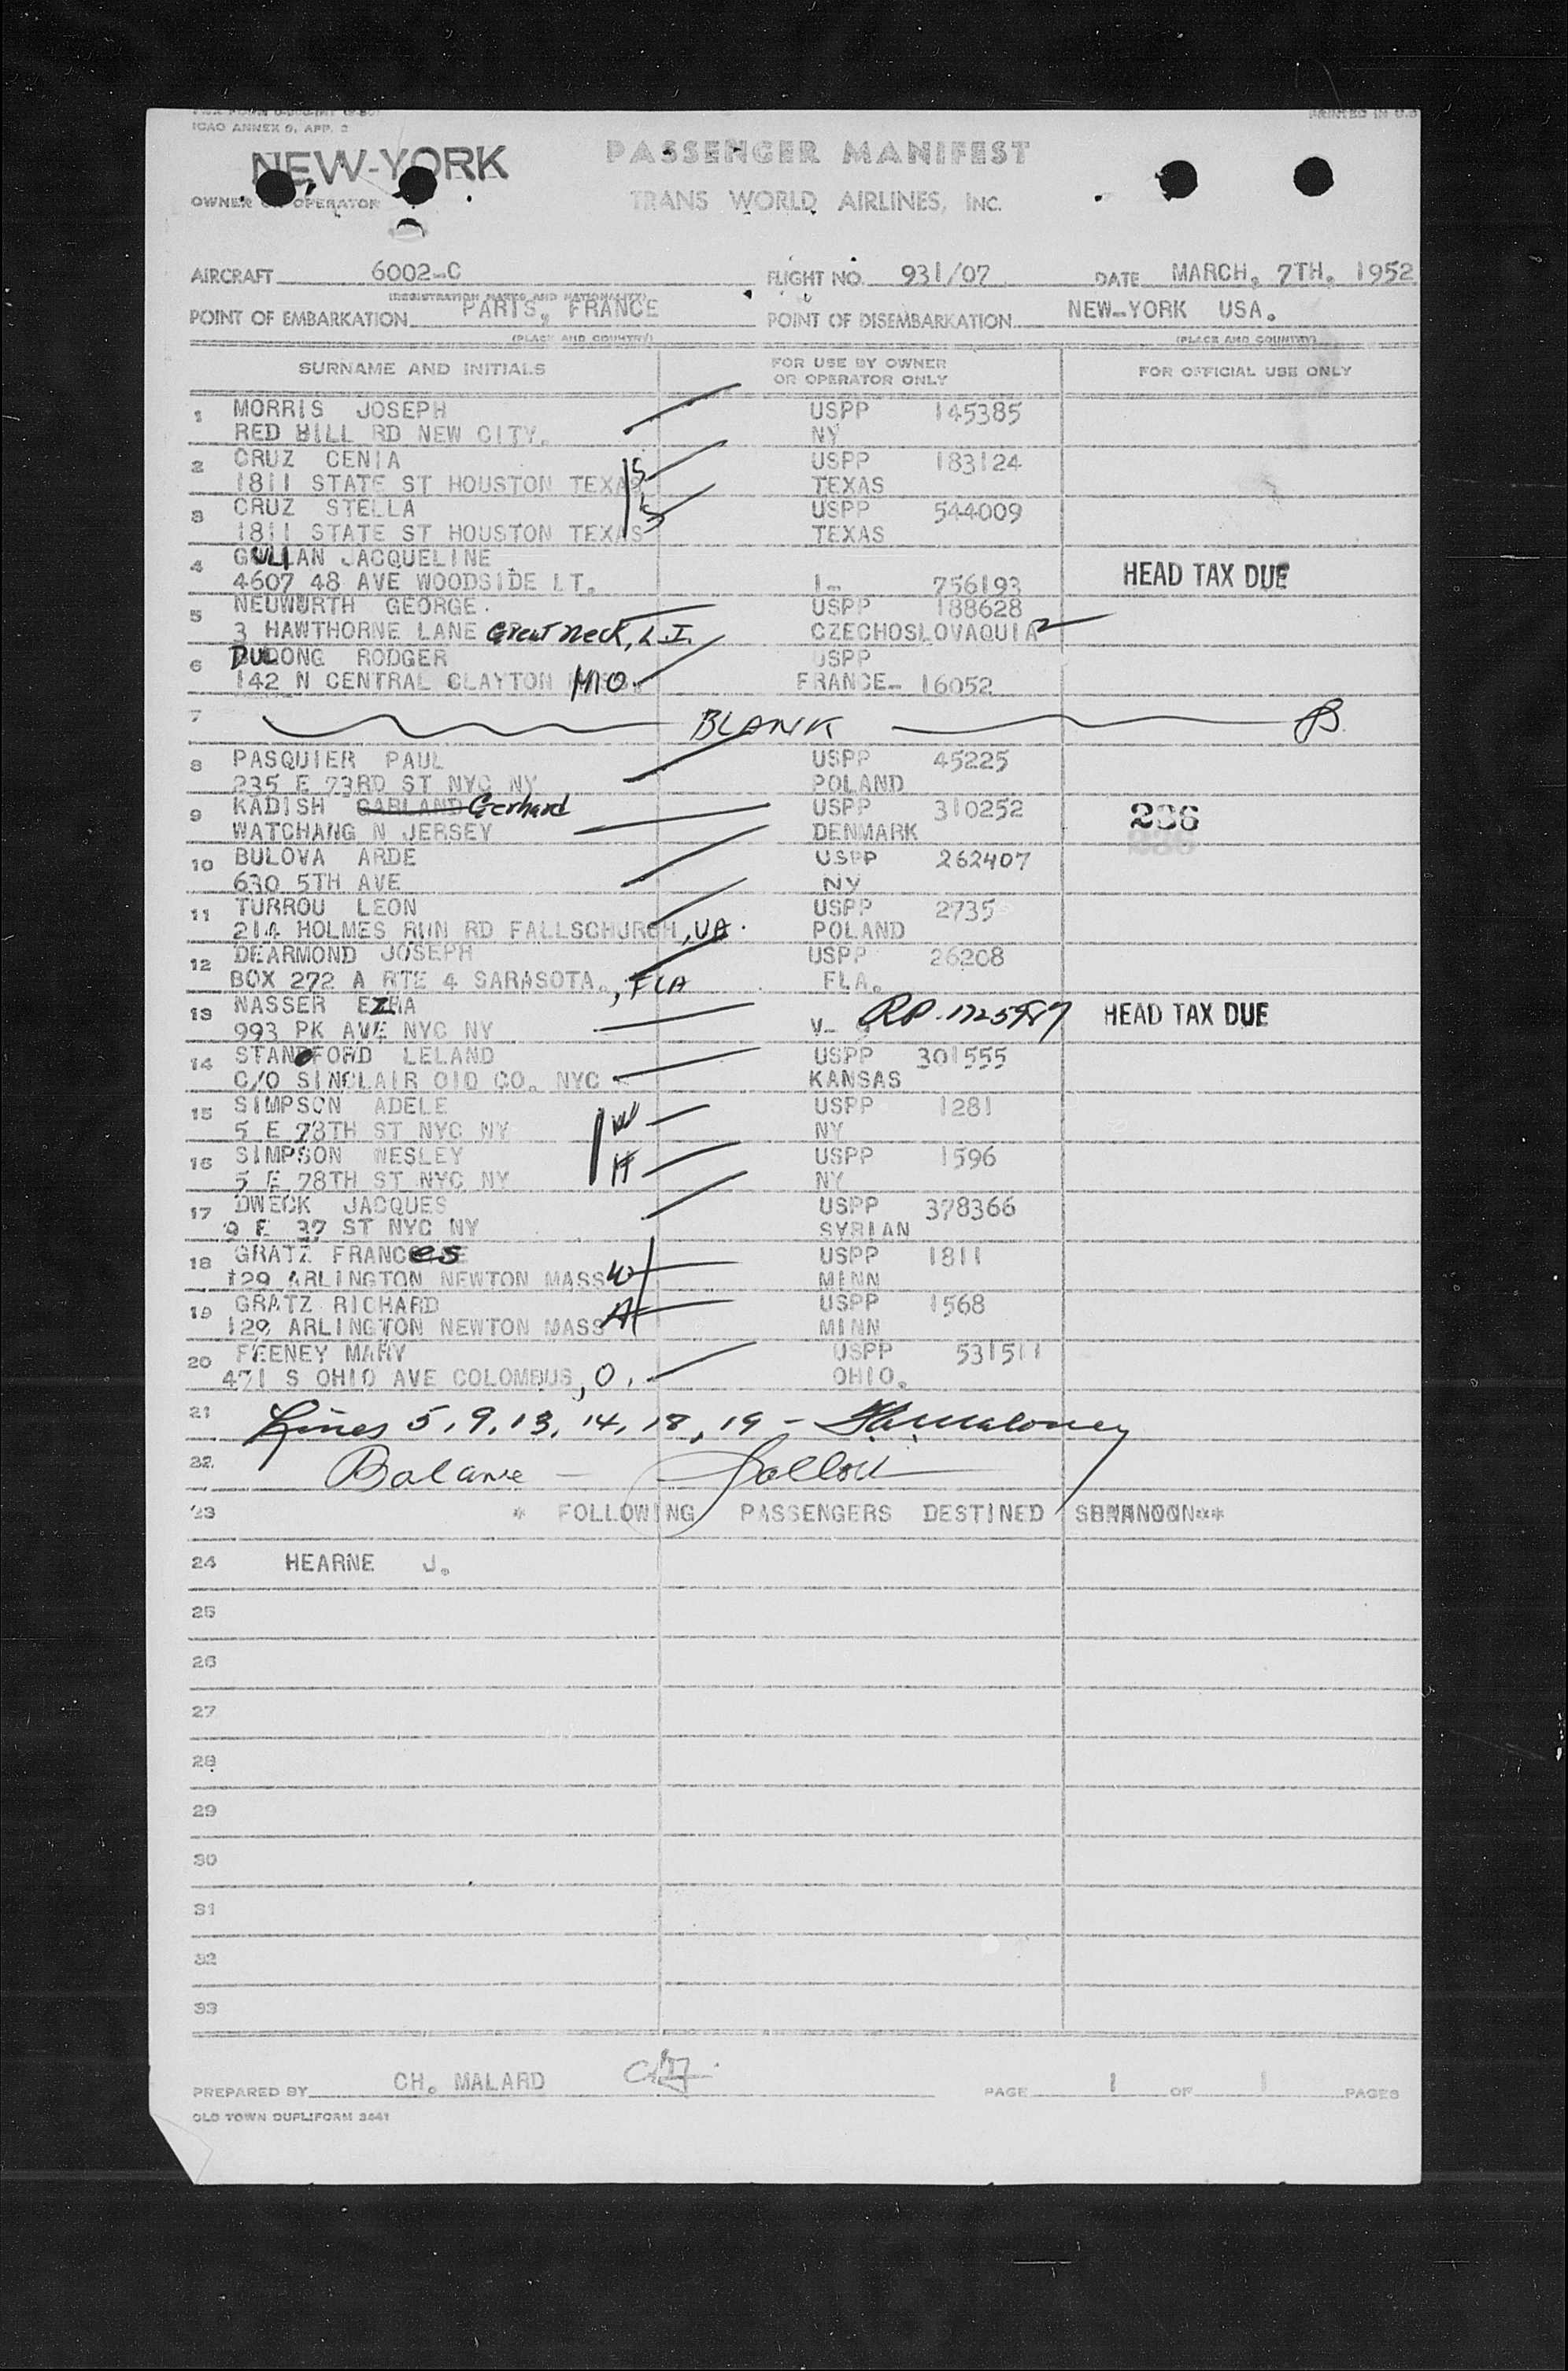 ICAO ANNEX 9, APP. 2
PRINTED IN U.S
NEW-YORK
PASSENGER MANIFEST
OWNER OR OPERATOR
TRANS WORLD AIRLINES, INC.
AIRCRAFT 6002-C FLIGHT NO. 931/07 DATE MARCH, 7TH, 1952
(REGISTRATION MARKS AND NATIONALITY)
POINT OF EMBARKATION PARIS, FRANCE POINT OF DISEMBARKATION NEW-YORK USA.
(PLACE AND COUNTRY) (PLACE AND COUNTRY)
SURNAME AND INITIALS FOR USE BY OWNER OR OPERATOR ONLY FOR OFFICIAL USE ONLY
1 MORRIS JOSEPH USPP 145385
RED HILL RD NEW CITY. NY
2 CRUZ CENIA USPP 183124
1811 STATE ST HOUSTON TEXAS S TEXAS
3 CRUZ STELLA USPP 544009
1811 STATE ST HOUSTON TEXAS S TEXAS
4 GULLAN JACQUELINE
4607 48 AVE WOODSIDE LT. I- 756193 HEAD TAX DUE
5 NEUWURTH GEORGE. USPP 188628
3 HAWTHORNE LANE Great Neck, L.I. CZECHOSLOVAQUIA
6 DULONG RODGER USPP
142 N CENTRAL CLAYTON MO. FRANCE- 16052
7 BLANK B.
8 PASQUIER PAUL USPP 45225
235 E 73RD ST NYC NY POLAND
9 KADISH GARLAND Gerhard USPP 310252 236
WATCHANG N JERSEY DENMARK
10 BULOVA ARDE USPP 262407
630 5TH AVE NY
11 TURROU LEON USPP 2735
214 HOLMES RUN RD FALLSCHURCH, VA. POLAND
12 DEARMOND JOSEPH USPP 26208
BOX 272 A RTE 4 SARASOTA., FLA FLA.
13 NASSER EZRA RP-1725987 HEAD TAX DUE
993 PK AVE NYC NY V-
14 STANDFORD LELAND USPP 301555
C/O SINCLAIR OID CO. NYC KANSAS
15 SIMPSON ADELE W USPP 1281
5 E 78TH ST NYC NY NY
16 SIMPSON WESLEY H USPP 1596
5 E 78TH ST NYC NY NY
17 DWECK JACQUES USPP 378366
9 E 37 ST NYC NY SYRIAN
18 GRATZ FRANCES USPP 1811
129 ARLINGTON NEWTON MASS W MINN
19 GRATZ RICHARD USPP 1568
129 ARLINGTON NEWTON MASS H MINN
20 FEENEY MARY USPP 531511
471 S OHIO AVE COLOMBUS, O. OHIO.
21 Lines 5, 9, 13, 14, 18, 19 - Maloney
22 Balance -
23 * FOLLOWING PASSENGERS DESTINED
24 HEARNE J.
25
26
27
28
29
30
31
32
33
PREPARED BY CH. MALARD PAGE 1 OF 1 PAGES
OLD TOWN DUPLIFORM 3441